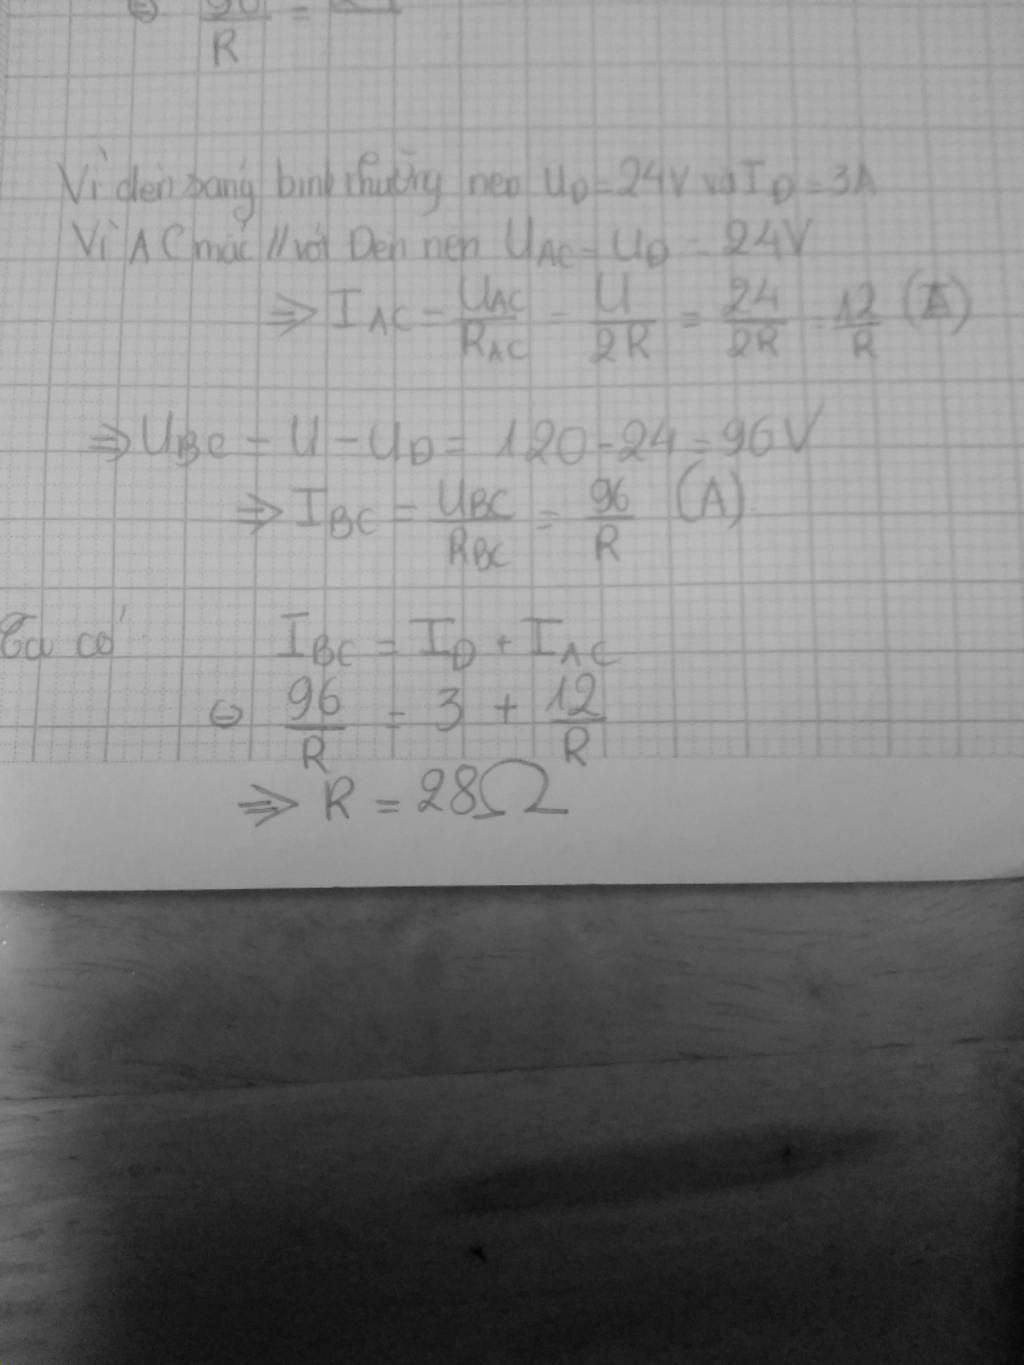 ⇔ 96/R =
Vì đèn sáng bình thường nên U_Đ = 24V và I_Đ = 3A
Vì AC mắc // với Đèn nên U_AC = U_Đ = 24V
⇒ I_AC = U_AC/R_AC = U/2R = 24/2R = 12/R (A)
⇒ U_BC = U - U_Đ = 120 - 24 = 96V
⇒ I_BC = U_BC/R_BC = 96/R (A)
Ta có I_BC = I_Đ + I_AC
⇔ 96/R = 3 + 12/R
⇒ R = 28Ω